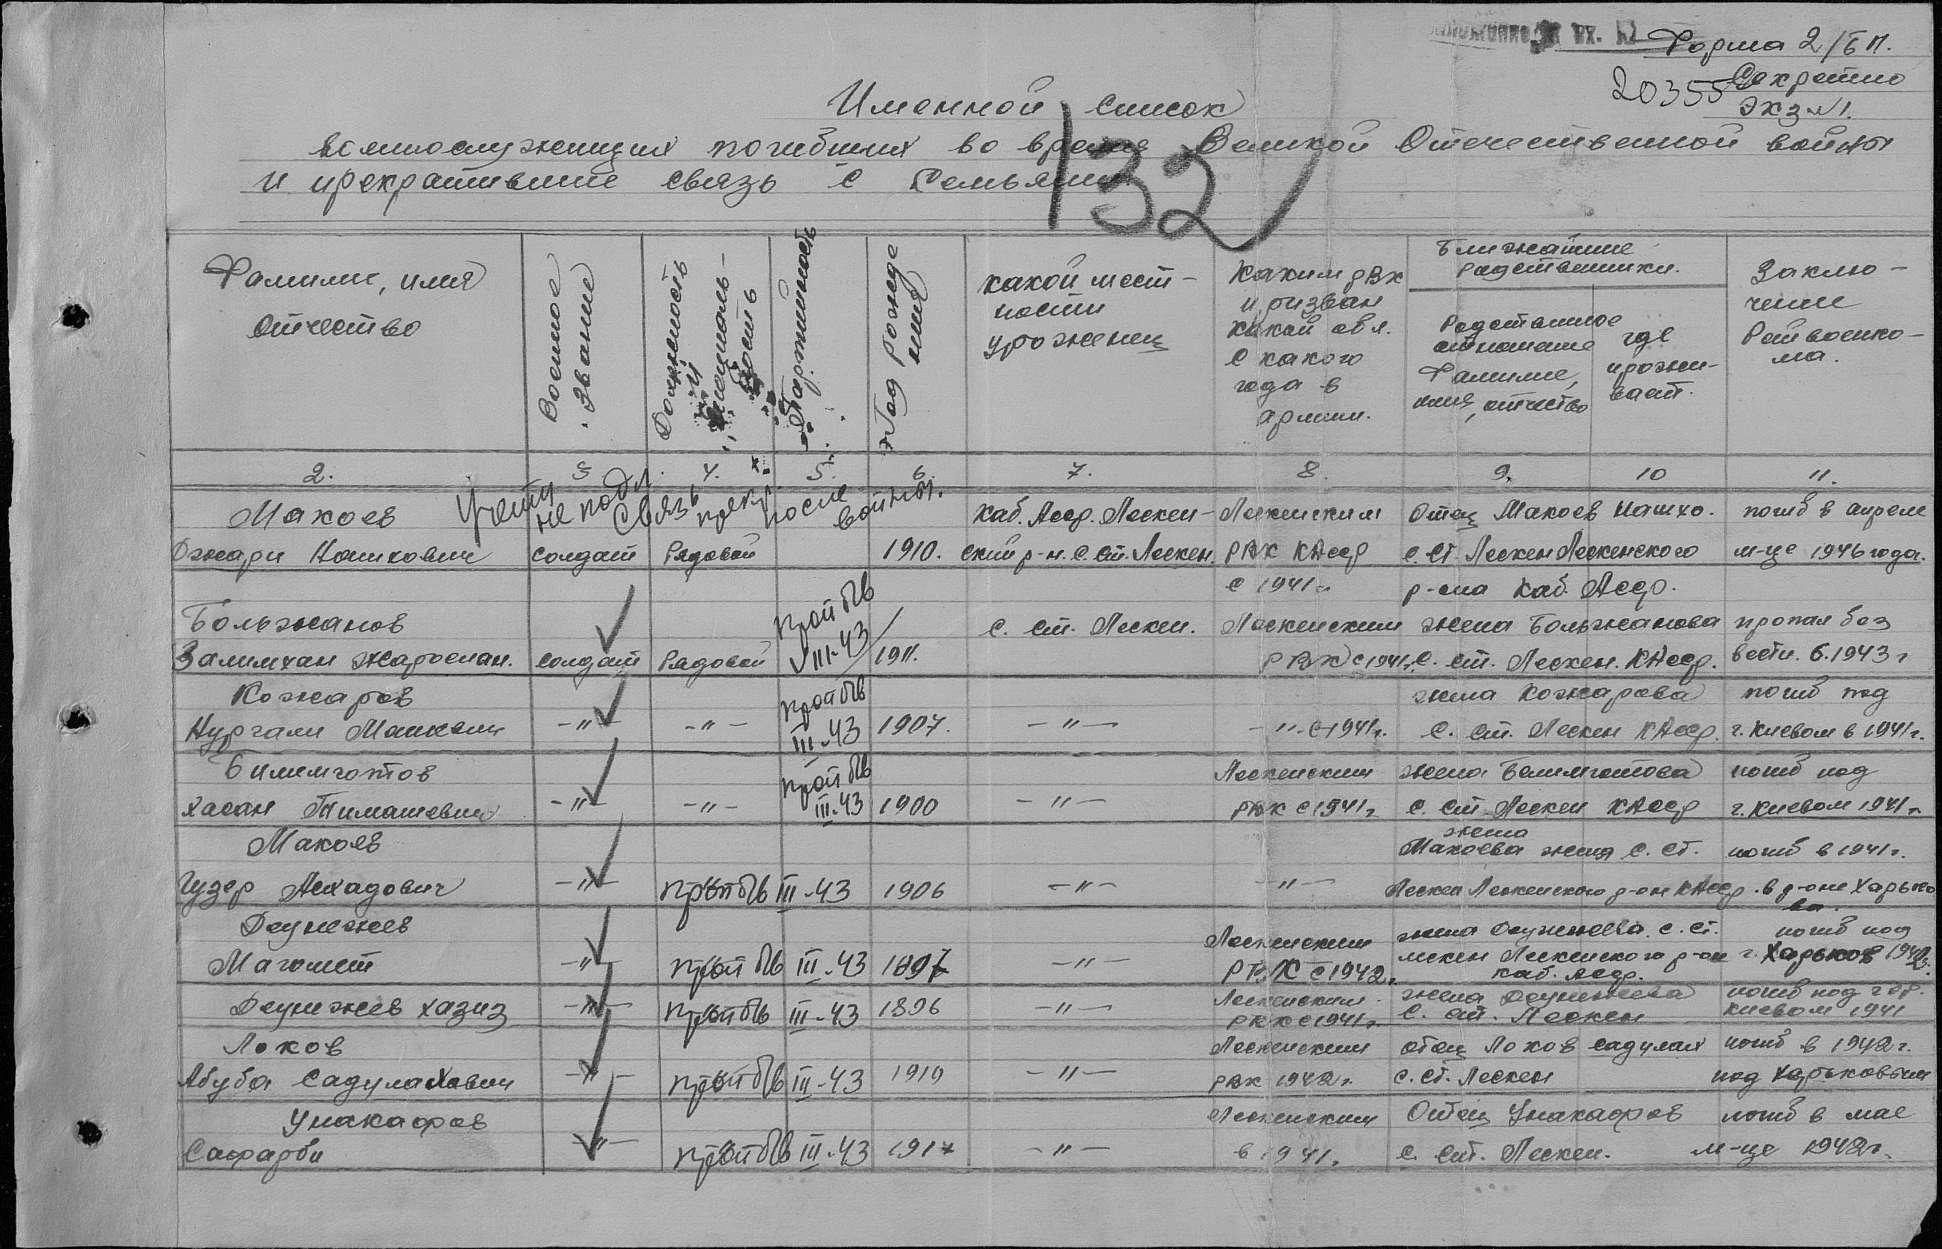 Форма 2/БП.
Секретно
20355с
Экз №1.
Именной список
132
военнослужащих погибших во время Великой Отечественной войны
и прекратившие связь с семьями
Фамилие, имя отчество
Военное звание
Должность и специальность
Партийность
Год рождения
какой местности уроженец
Каким РВК призван какой обл. с какого года в армии.
Ближайшие родственники.
Родственное отношение Фамилие, имя, отчество
где проживает.
Заключение Райвоенкома.
2. 3 4. 5. 6. 7. 8. 9. 10 11.
Учету не подл. связь прекр. после войны.
Макоев Каб. Асср. Лескен- Лескенским Отец Макоев Нашхо. погиб в апреле
Джари Нашхович солдат Рядовой 1910. ский р-н. с. ст. Лескен. РВК КАсср с. Ст. Лескен Лескенского м-це 1946 года.
с 1941 г. р-она Каб. Асср.
Больжанов проп б/в с. ст. Лескен. Лескенским жена Больжанова пропал без
Залимхан солдат Рядовой VIII-43 1911. РВК с 1941 г. с. ст. Лескен. КАсср. вести. 6.1943 г
Кожаров проп б/в жена Кожарова погиб под
Нургали -"- -"- III-43 1907. -"- -"- с 1941 г. с. ст. Лескен КАсср. г. Киевом в 1941 г.
проп б/в Лескенским жена погиб под
Хасан Тимашевич -"- -"- III-43 1900 -"- РВК с 1941 г с. ст. Лескен КАсср г. Киевом 1941 г.
Макоев жена
Макоева жена с. ст. погиб в 1941 г.
Гузер -"- проп б/в III-43 1906 -"- -"- Лескен Лескенского р-он КАсср. в р-оне Харькова.
Деунежев Лескенским жена Деунежева с. ст. погиб под
Магомет -"- проп б/в III-43 1897 -"- РВК с 1942 г. Лескен Лескенского р-он г. Харьков 1942 г.
Каб. Асср.
Деунежев Хазиз -"- проп б/в III-43 1896 -"- Лескенским жена Деунежева погиб под гор.
РВК с 1941 г. с. ст. Лескен Киевом 1941
Локов Лескенским отец Локов Садулах погиб в 1942 г.
Абуба Садулахович -"- проп б/в III-43 1919 -"- РВК 1942 г. с. ст. Лескен под Харьковым
Унакафов Лескенским Отец Унакафов погиб в мае
Сафарби -"- проп б/в III-43 1917 -"- в 1941. с. ст. Лескен. м-це 1942 г.